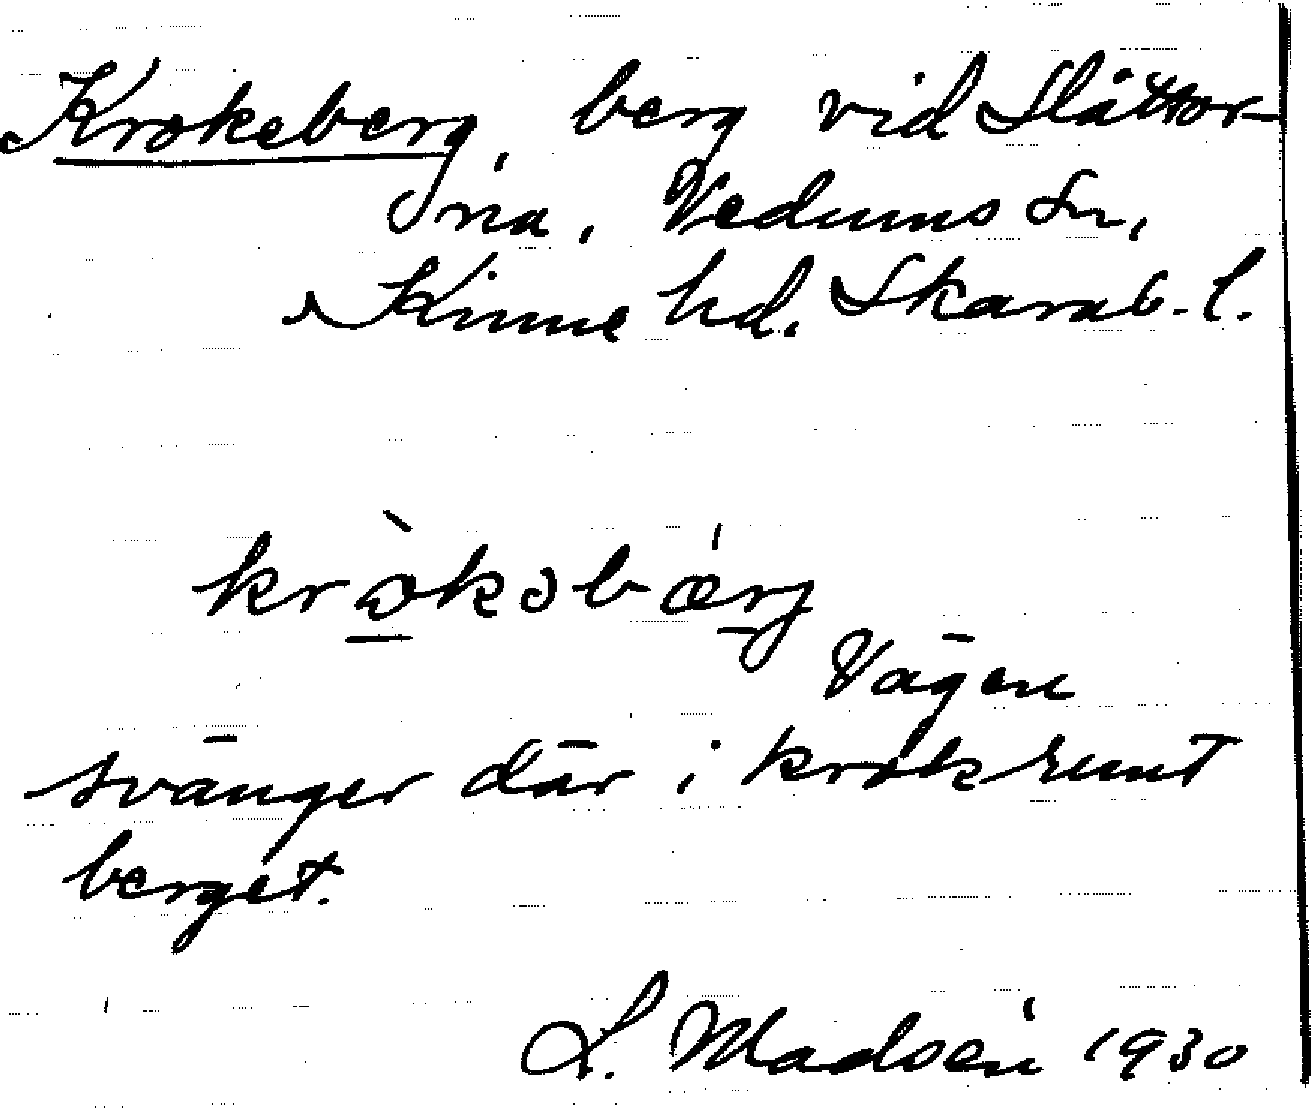 Krokeberg, berg vid Slättor-
na, Vedums sn,
Kinne hd, Skarab. l.
krɔ̀kəbǽrj
Vägen
svänger där i krok runt
berget.
L. Madsén 1930